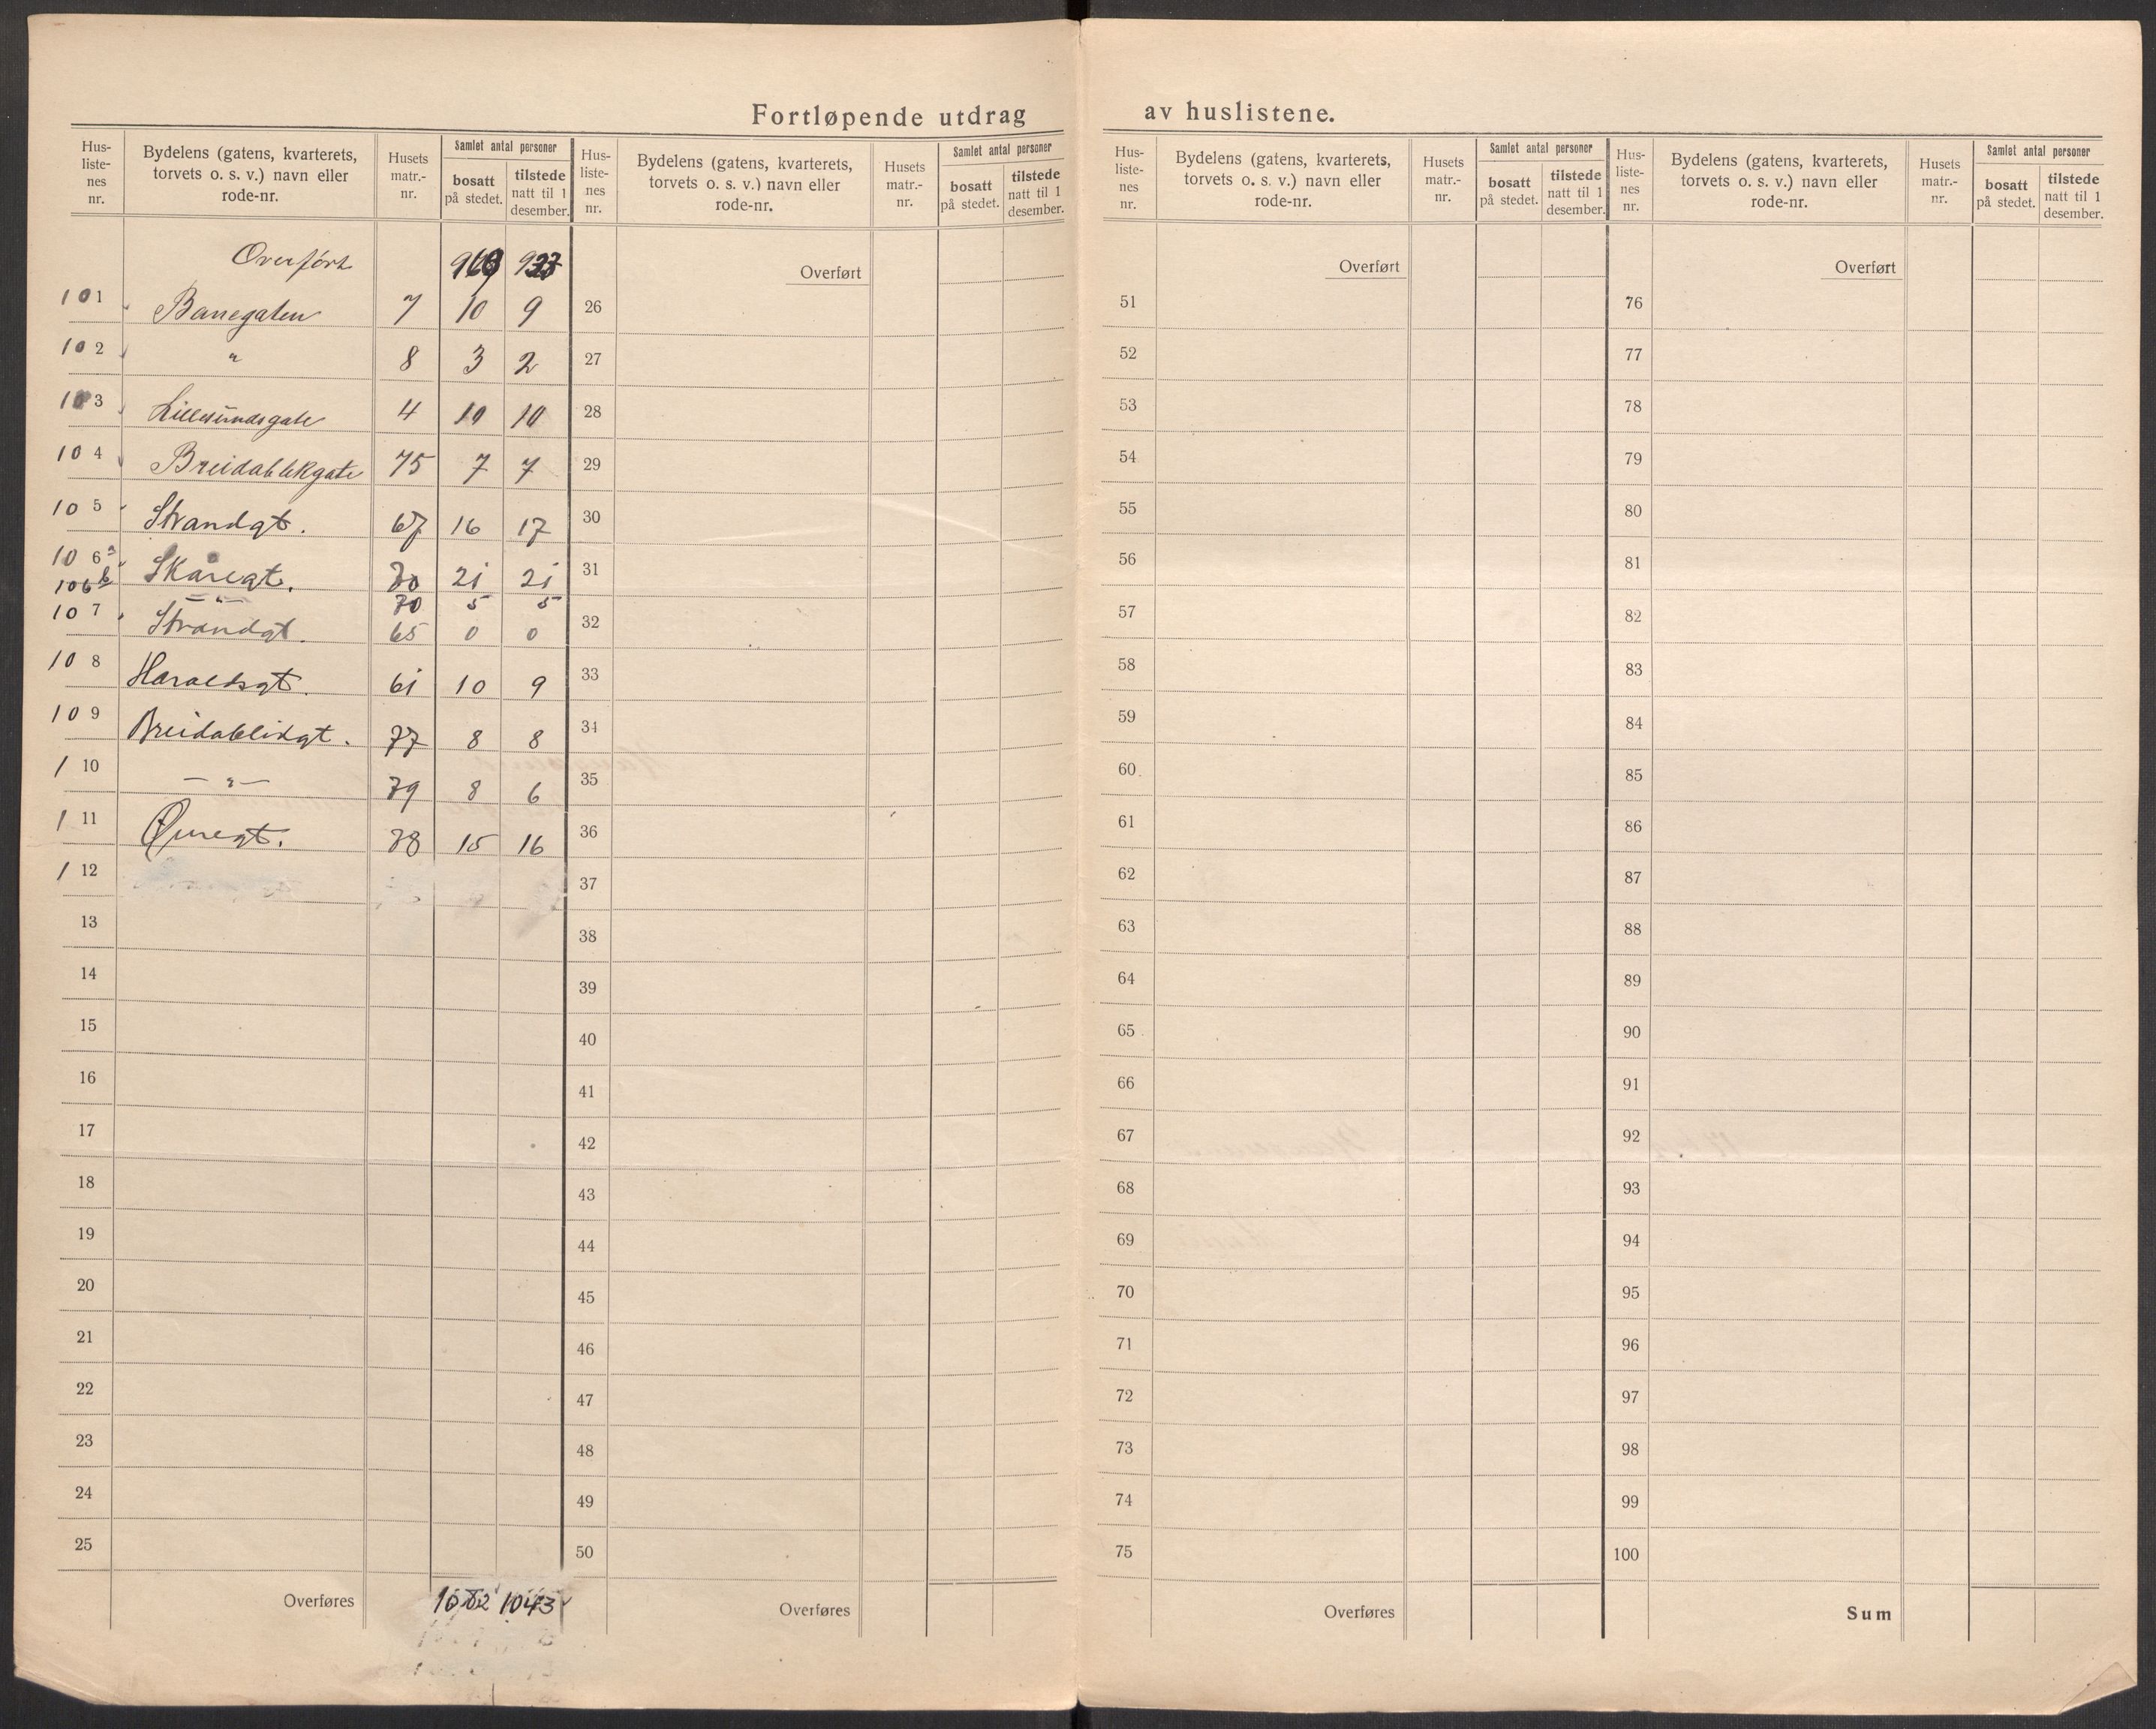 Fortløpende utdrag av huslistene.
Hus-
liste-
nes
nr.
Bydelens (gatens, kvarterets,
torvets o. s. v.) navn eller
rode-nr.
Husets
matr.-
nr.
Samlet antal personer
bosatt
på stedet.
tilstede
natt til 1
desember.
Overført
101 Banegaten 7 10 9
102 " 8 3 2
103 Lillesundsgate 4 10 10
104 Breidablikgate 75 7 7
105 Strandgt. 67 16 17
106a Skåregt. 70 21 21
106b —"— 70 5 5
107 Strandgt. 65 0 0
108 Haraldsgt. 61 10 9
109 Breidablikgt. 77 8 8
110 —"— 79 8 6
111 15 16
112
13
14
15
16
17
18
19
20
21
22
23
24
25
Overføres 1043
Hus-
liste-
nes
nr.
Bydelens (gatens, kvarterets,
torvets o. s. v.) navn eller
rode-nr.
Husets
matr.-
nr.
Samlet antal personer
bosatt
på stedet.
tilstede
natt til 1
desember.
Overført
26
27
28
29
30
31
32
33
34
35
36
37
38
39
40
41
42
43
44
45
46
47
48
49
50
Overføres
Hus-
liste-
nes
nr.
Bydelens (gatens, kvarterets,
torvets o. s. v.) navn eller
rode-nr.
Husets
matr.-
nr.
Samlet antal personer
bosatt
på stedet.
tilstede
natt til 1
desember.
Overført
51
52
53
54
55
56
57
58
59
60
61
62
63
64
65
66
67
68
69
70
71
72
73
74
75
Overføres
Hus-
liste-
nes
nr.
Bydelens (gatens, kvarterets,
torvets o. s. v.) navn eller
rode-nr.
Husets
matr.-
nr.
Samlet antal personer
bosatt
på stedet.
tilstede
natt til 1
desember.
Overført
76
77
78
79
80
81
82
83
84
85
86
87
88
89
90
91
92
93
94
95
96
97
98
99
100
Sum